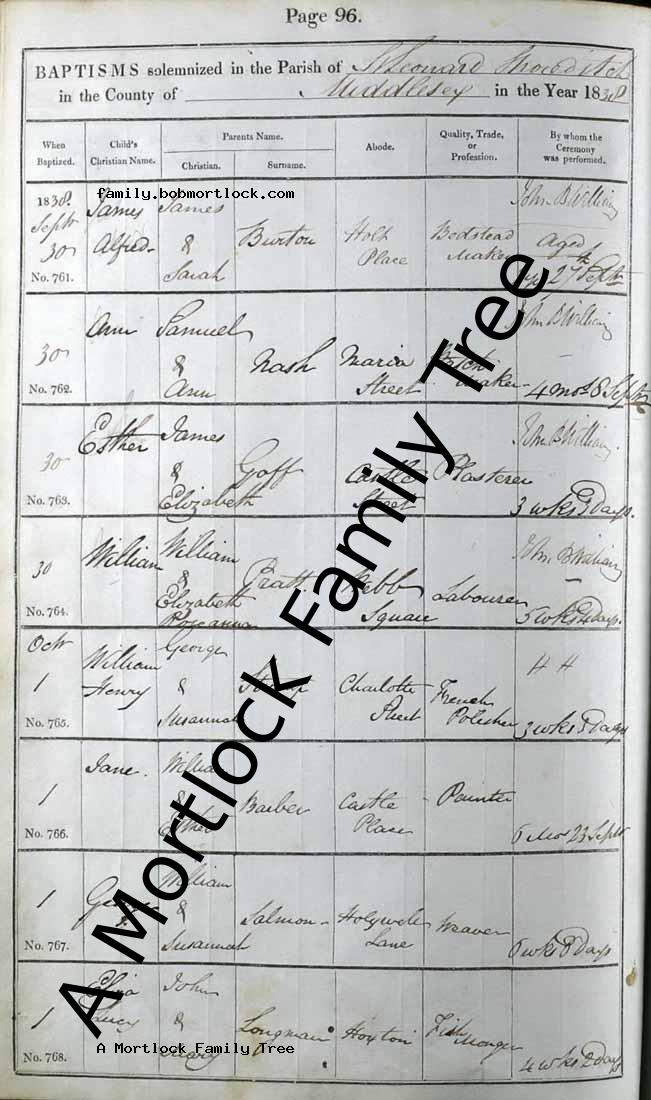 Page 96.
BAPTISMS solemnized in the Parish of St Leonard Shoreditch
in the County of Middlesex in the Year 1838
When Baptized.
Child's Christian Name.
Parents Name.
Christian.
Surname.
Abode.
Quality, Trade, or Profession.
By whom the Ceremony was performed.
family.bobmortlock.com
1838.
Septr
30
No. 761.
James
Alfred
James
&
Sarah
Burton
Holt
Place
Bedstead
Maker
Aged
27th Septr
30
No. 762.
Ann
Samuel
&
Ann
Nash
Maria
Street
maker
4 mos 8 Septr
30
No. 763.
Esther
James
&
Elizabeth
Goff
Castle
Street
Plasterer
3 wks Days.
30
No. 764.
William
William
&
Elizabeth
Roseanna
Pratt
Webb
Square
Labourer
5 wks 4 days.
Octr
1
No. 765.
William
Henry
George
&
Susannah
Charlotte
Street
French
Polisher
H H
3 wks Days
1
No. 766.
Jane.
William
&
Esther
Barber
Castle
Place
Painter
23 Septr
1
No. 767.
George
William
&
Susannah
Salmon
Holywell
Lane
Weaver
wks 8 Days
1
No. 768.
Eliza
Lucy
John
&
Mary
Longman
Hoxton
Fish
Monger
4 wks 2 Days
A Mortlock Family Tree
A Mortlock Family Tree